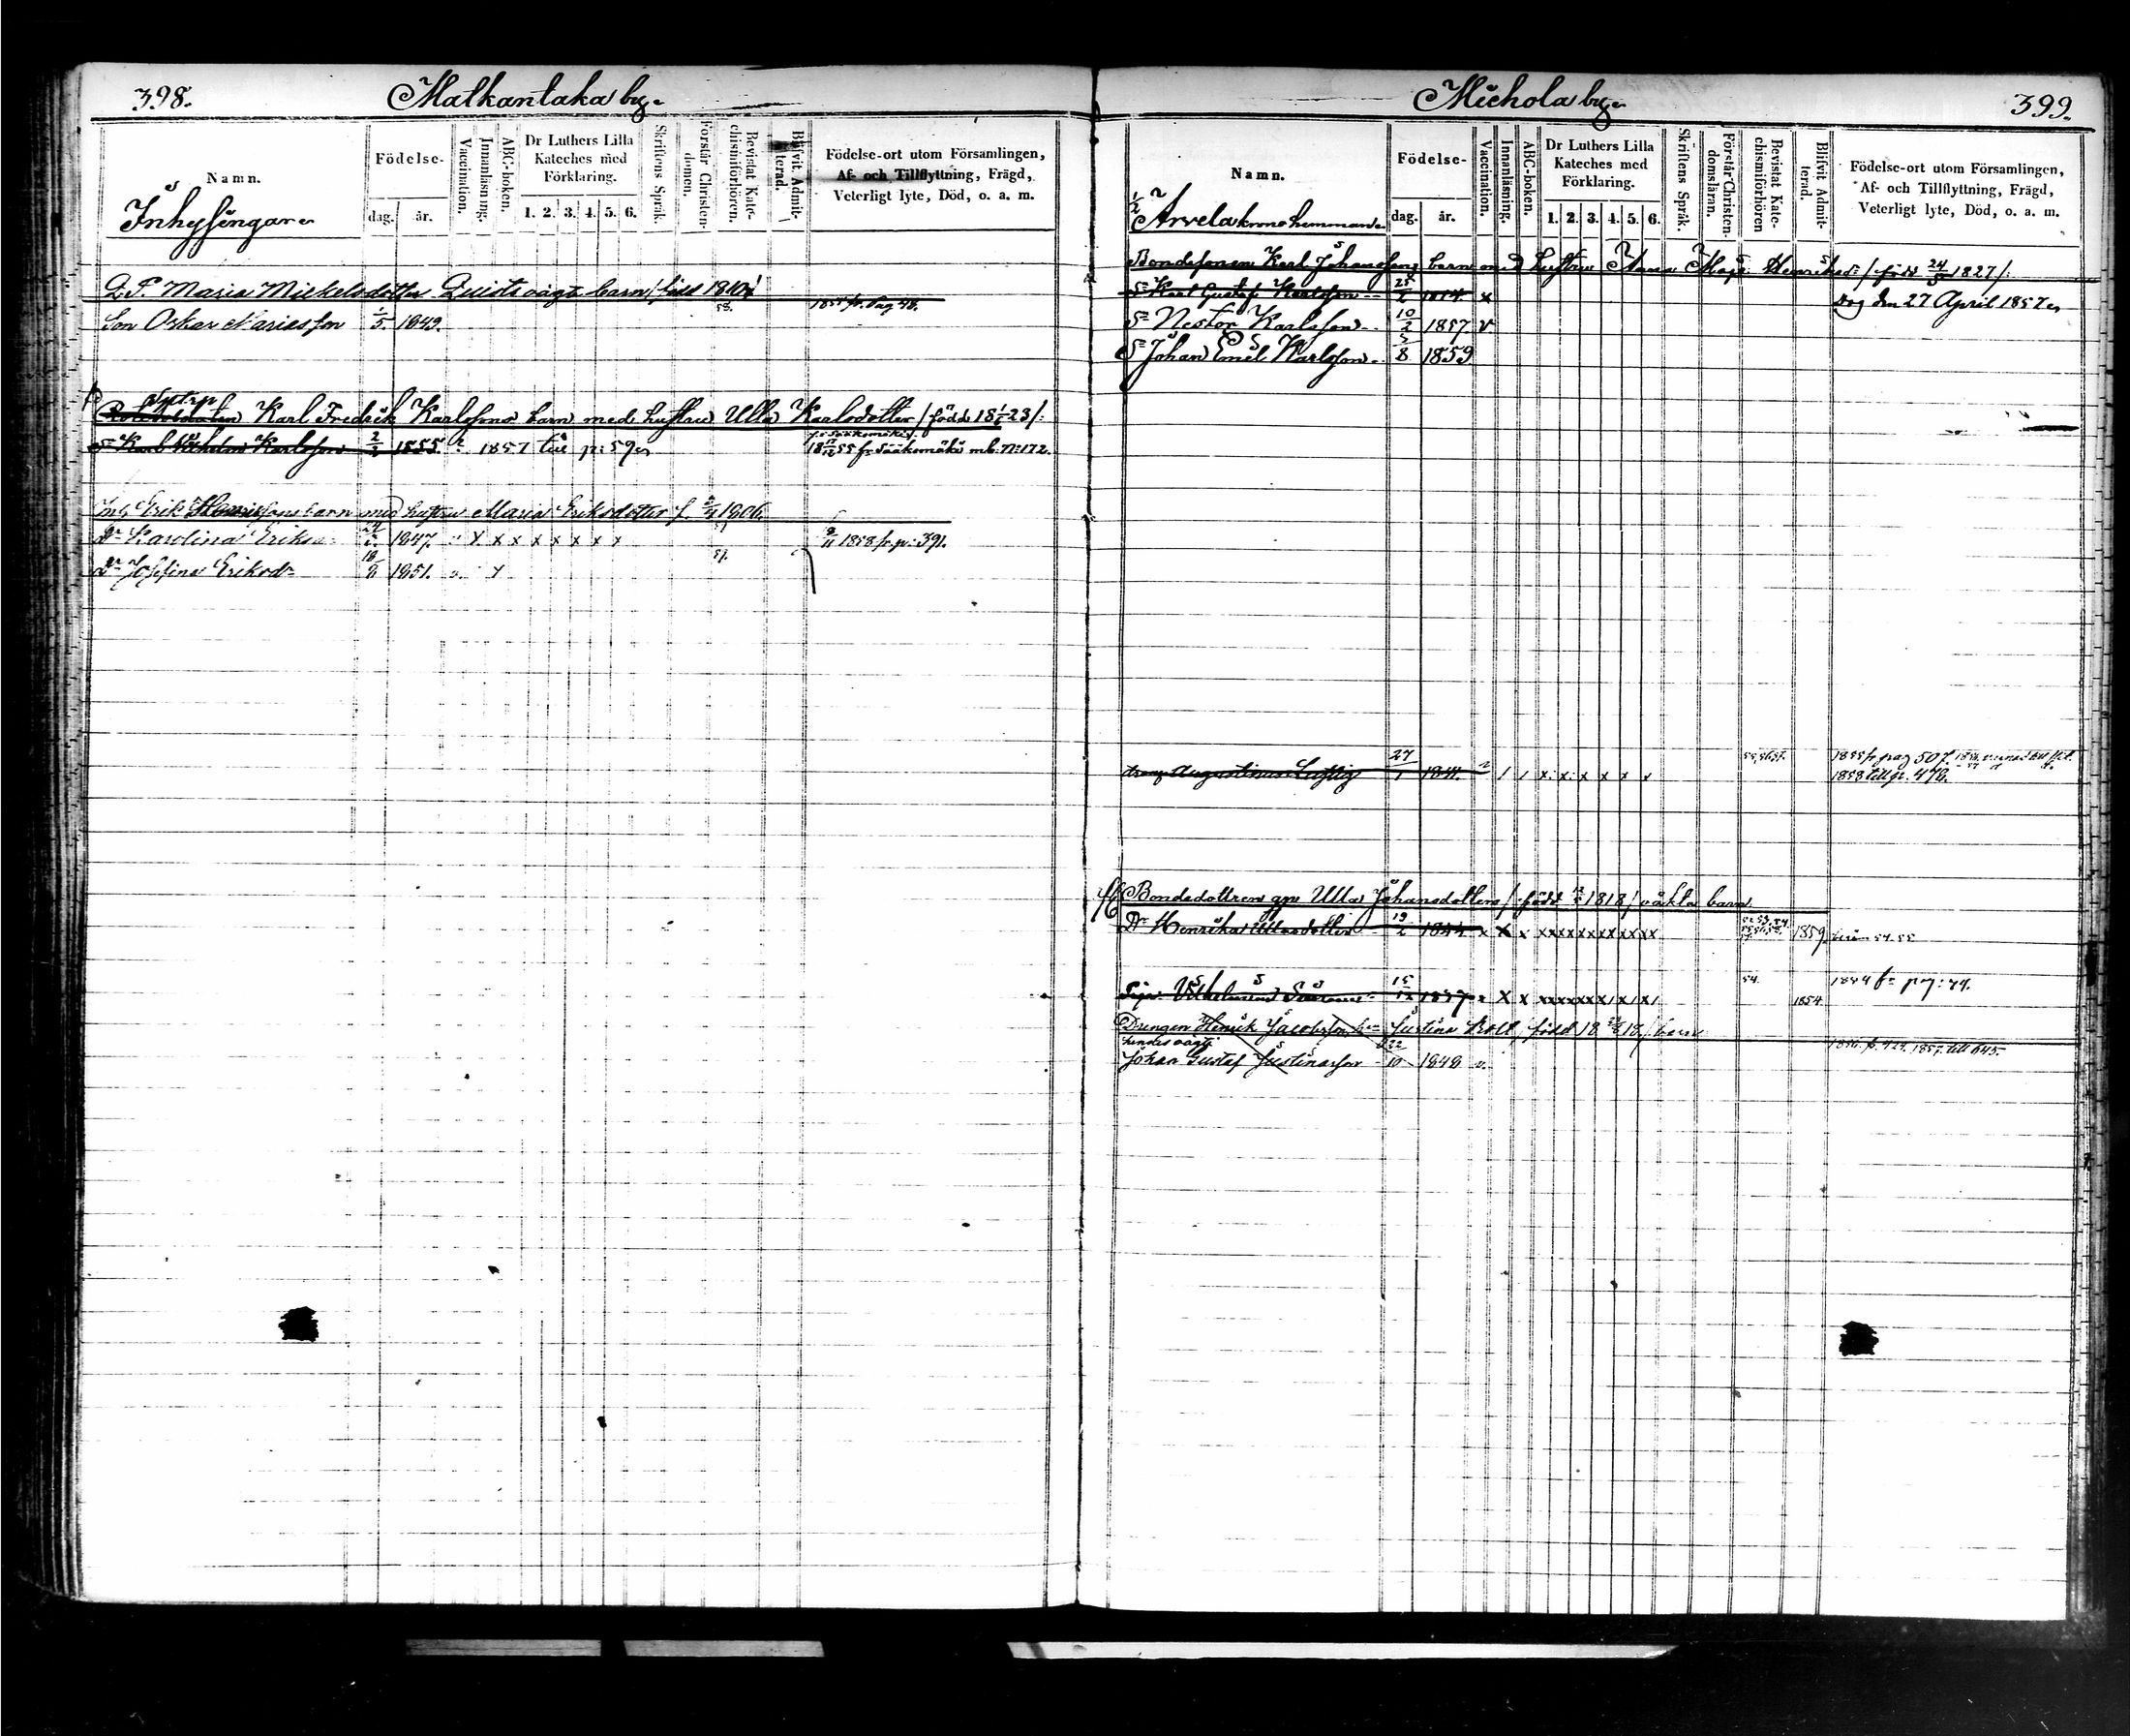 398. Matkantaka by.
Namn.
Inhysingar
Födelse-
dag. år.
Vaccination.
Innanläsning.
ABC-boken.
Dr Luthers Lilla
Kateches med
Förklaring.
1. 2. 3. 4. 5. 6.
Skriftens Språk.
Förstår Christen-
domen.
Bevistat Kate-
chismiförhören.
Blifvit Admit-
terad.
Födelse-ort utom Församlingen,
Af- och Tillflyttning, Frägd,
Veterligt lyte, Död, o. a. m.
Q. P. Maria Mickelsdotter Quists oägta barn / född 1810
58. 1855 fr. Pag 48.
Son Oskar Mariasson 1/5 1849.
Rotesoldaten Karl Fredrik Karlssons barn med hustru Ulla Karlsdotter / född 18 23/:
Sn Karl Vilhelm Karlsson 2/2 1855. 1857 till p: 59 18 55 fr Sääksmäki mb: N: 172.
Inh. Erik Henrikssons barn med hustru Maria Eriksdotter f. 1806.
Dr Karolina Eriksd. 1847. x x x x x x x x 59 9/11 1858 fr. p: 391.
Dr Josefina Eriksdr 18/8 1851. 59.
Michola by. 399.
Namn.
1/2 Arvela kronohemman
Födelse-
dag. år.
Vaccination.
Innanläsning.
ABC-boken.
Dr Luthers Lilla
Kateches med
Förklaring.
1. 2. 3. 4. 5. 6.
Skriftens Språk.
Förstår Christen-
domsläran.
Bevistat Kate-
chismiförhören
Blifvit Admit-
terad.
Födelse-ort utom Församlingen,
Af- och Tillflyttning, Frägd,
Veterligt lyte, Död, o. a. m.
Bondesonen Karl Johanssons barn med hustru Anna Maja Henriksd: / född 24 1827/:
Sn Karl Gustaf Karlsson 25/2 1854. x Dog den 27 April 1857
Sn Nestor Karlsson 10/2 1857. v
Sn Johan Emil Karlsson 5/8 1859
dreng Augustinus Lustig 27/1 1841. / / x x x x x x 55,56,57. 1855 fr pag 507.
1858 till p. 478.
Bondedottren gp Ulla Johansdotters / född 1818 / oäkta barn
Dr Henrika Ulladotter 19/2 1844 x x x xxxxxxxxxxxx 1859.
Vilhelmina 15/12 1837 x x x 54. 1854 1854 fr pag: 74.
Drengen Henrik Jacobsson hu Justina Koll / född 18 18 / barn
hendes oägta 1856 fr. 429. 1857. till 645.
Johan Gustaf Justinasson 22/10 1848 v.